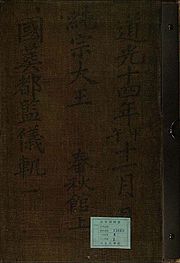 道光十四年甲午十一月日
純宗大王
春秋館上
國葬都監儀軌一